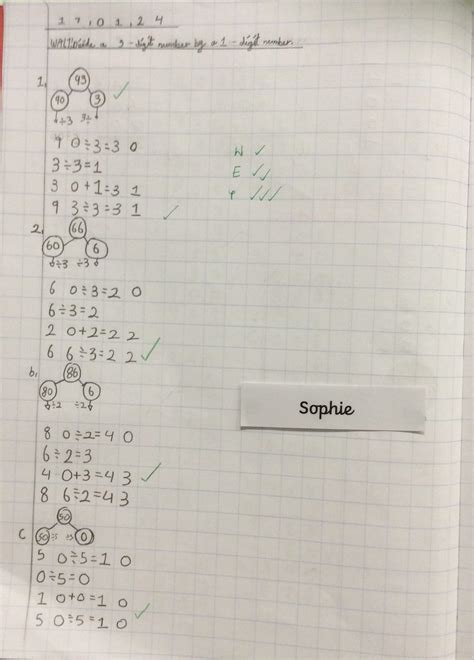 17.01.24
WALT: Divide a 2-digit number by a 1-digit number.
1.
93
90 3
÷3 ÷3
90÷3=30
3÷3=1
30+1=31
93÷3=31
W ✓
E ✓✓
✓✓✓
2.
66
60 6
÷3 ÷3
60÷3=20
6÷3=2
20+2=22
66÷3=22
b.
86
80 6
÷2 ÷2
80÷2=40
6÷2=3
40+3=43
86÷2=43
Sophie
C
50
50 0
÷5 ÷5
50÷5=10
0÷5=0
10+0=10
50÷5=10